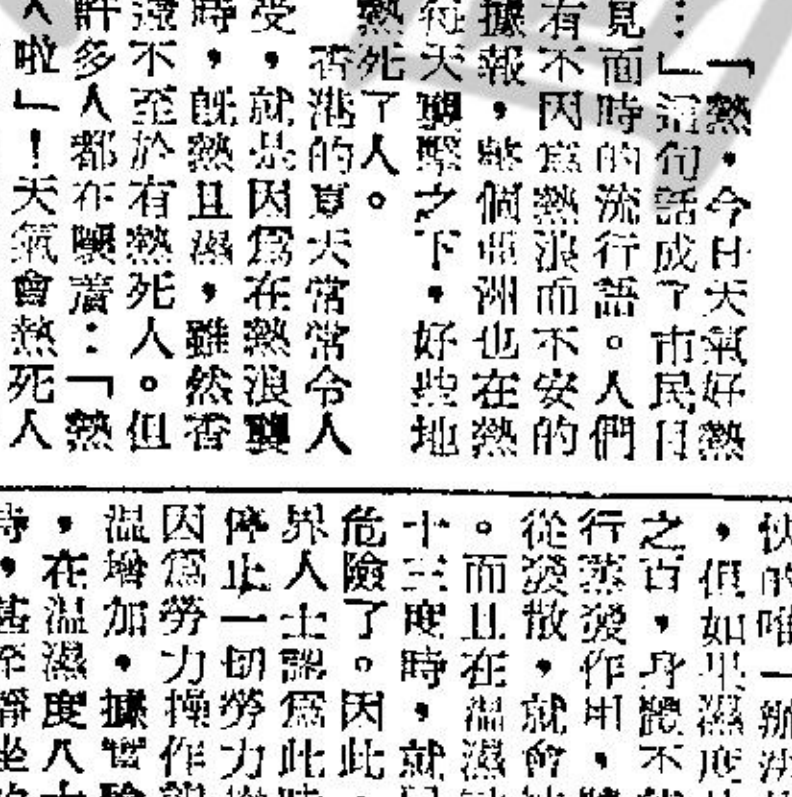 「熱，今日天氣好熱
…」這句話成了市民日
見面時的流行語。人們
有不因為熱浪而不安的
據報，整個亞洲也在熱
天聯擊之下，好些地
熱死了人。
香港的夏天常常令人
受，就是因為在熱浪襲
時，既熱且濕，雖然香
還不至於有熱死人。但
許多人都在嘆着：「熱
人啦」！天氣會熱死人
的唯一辦法
，但如果濕度
之百，身體不
行蒸發作用，
從發散，就會
。而且在溫濕
十三度時，就
危險了。因此
界人士認為此
停止一切勞力
因為勞力操作
溫增加，據實驗
，在溫濕度八十
時，甚至靜坐